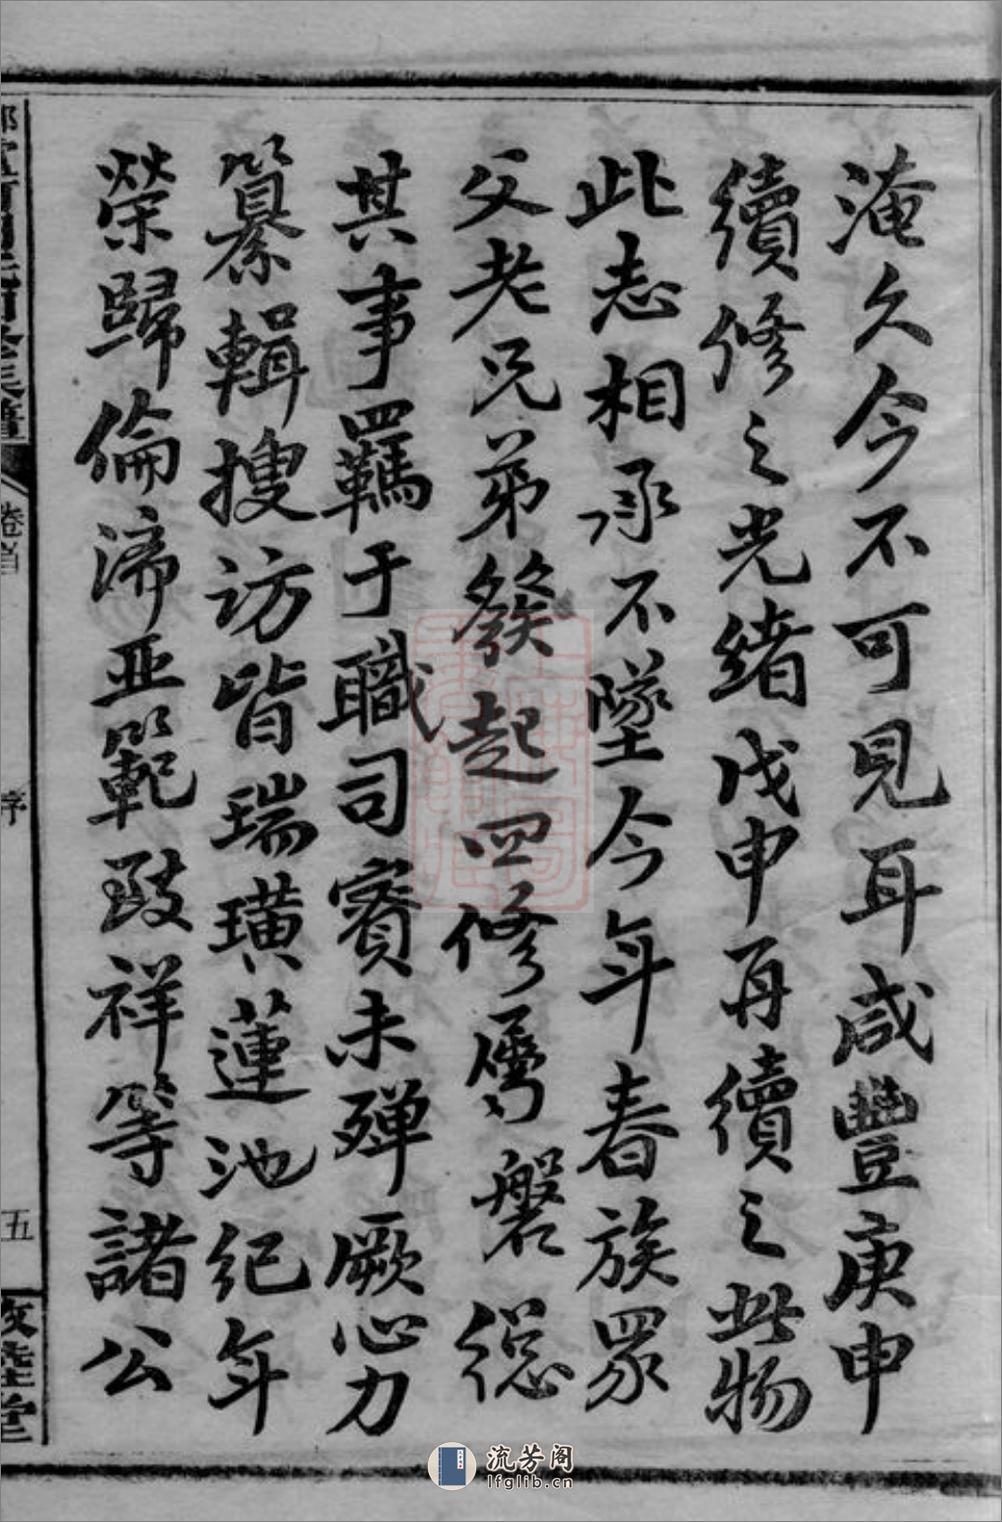 淹久今不可見耳咸豐庚申
續修之光緒戊申再續之此物
此志相承不墜今年春族眾
父老兄弟發起四修屬磐總
其事羈于職司賓未殫厥心力
纂輯搜访皆瑞璜蓮池紀年
榮歸倫渧亚範致祥等諸公
卷首
序
五
敦睦堂
流芳阁
lfglib.cn